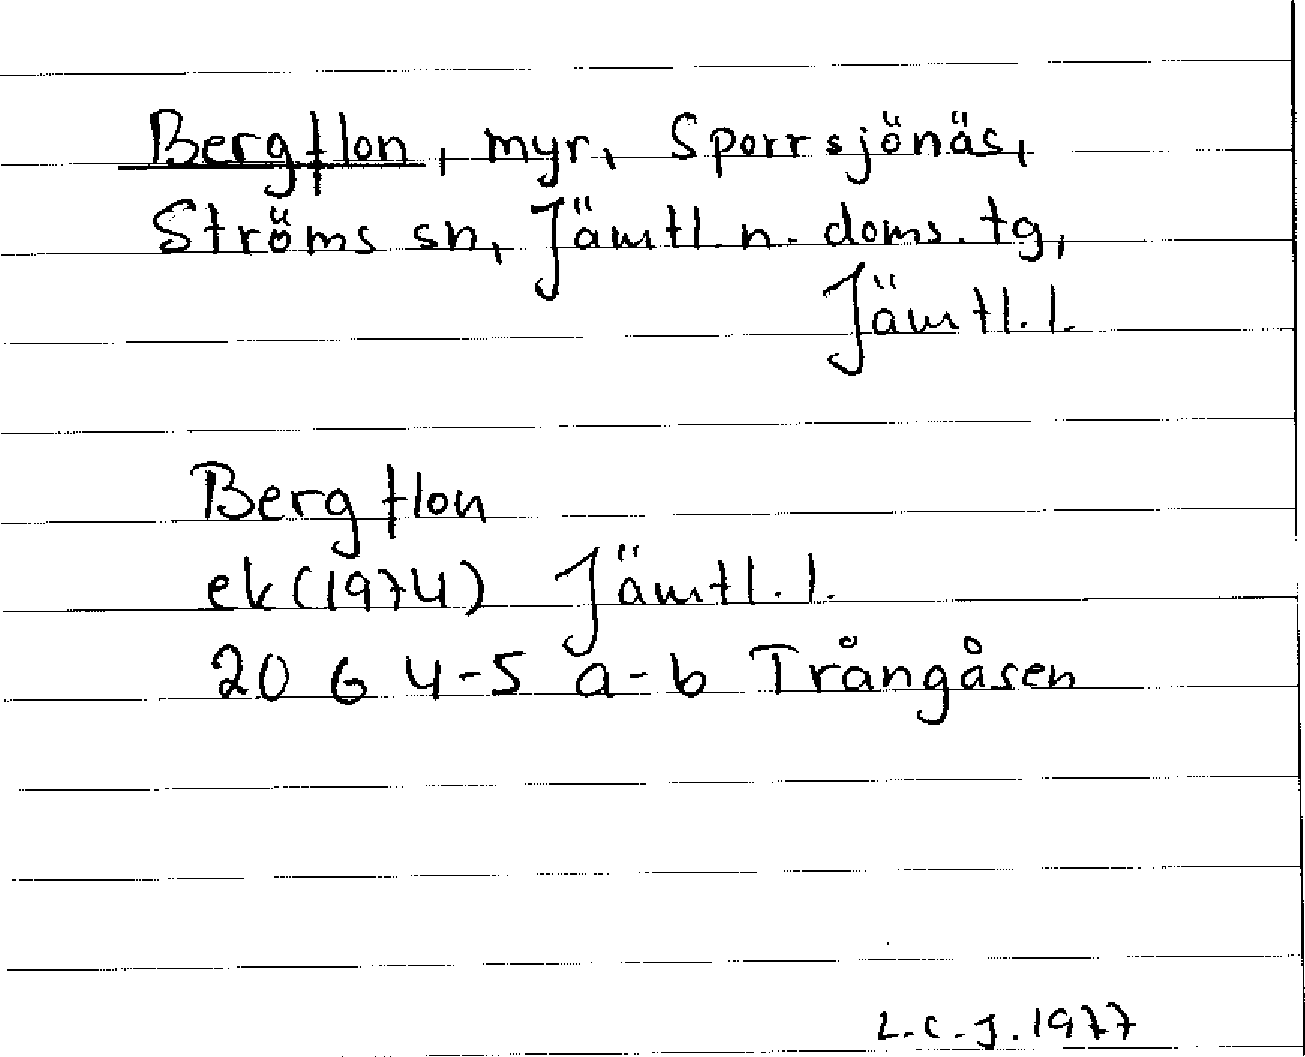 Bergflon, myr, Sporrsjönäs,
Ströms sn, Jämtl. n. doms. tg,
Jämtl. l.
Bergflon
ek (1974) Jämtl. l.
20 G 4-5 a-b Trångåsen
L.C.J. 1977